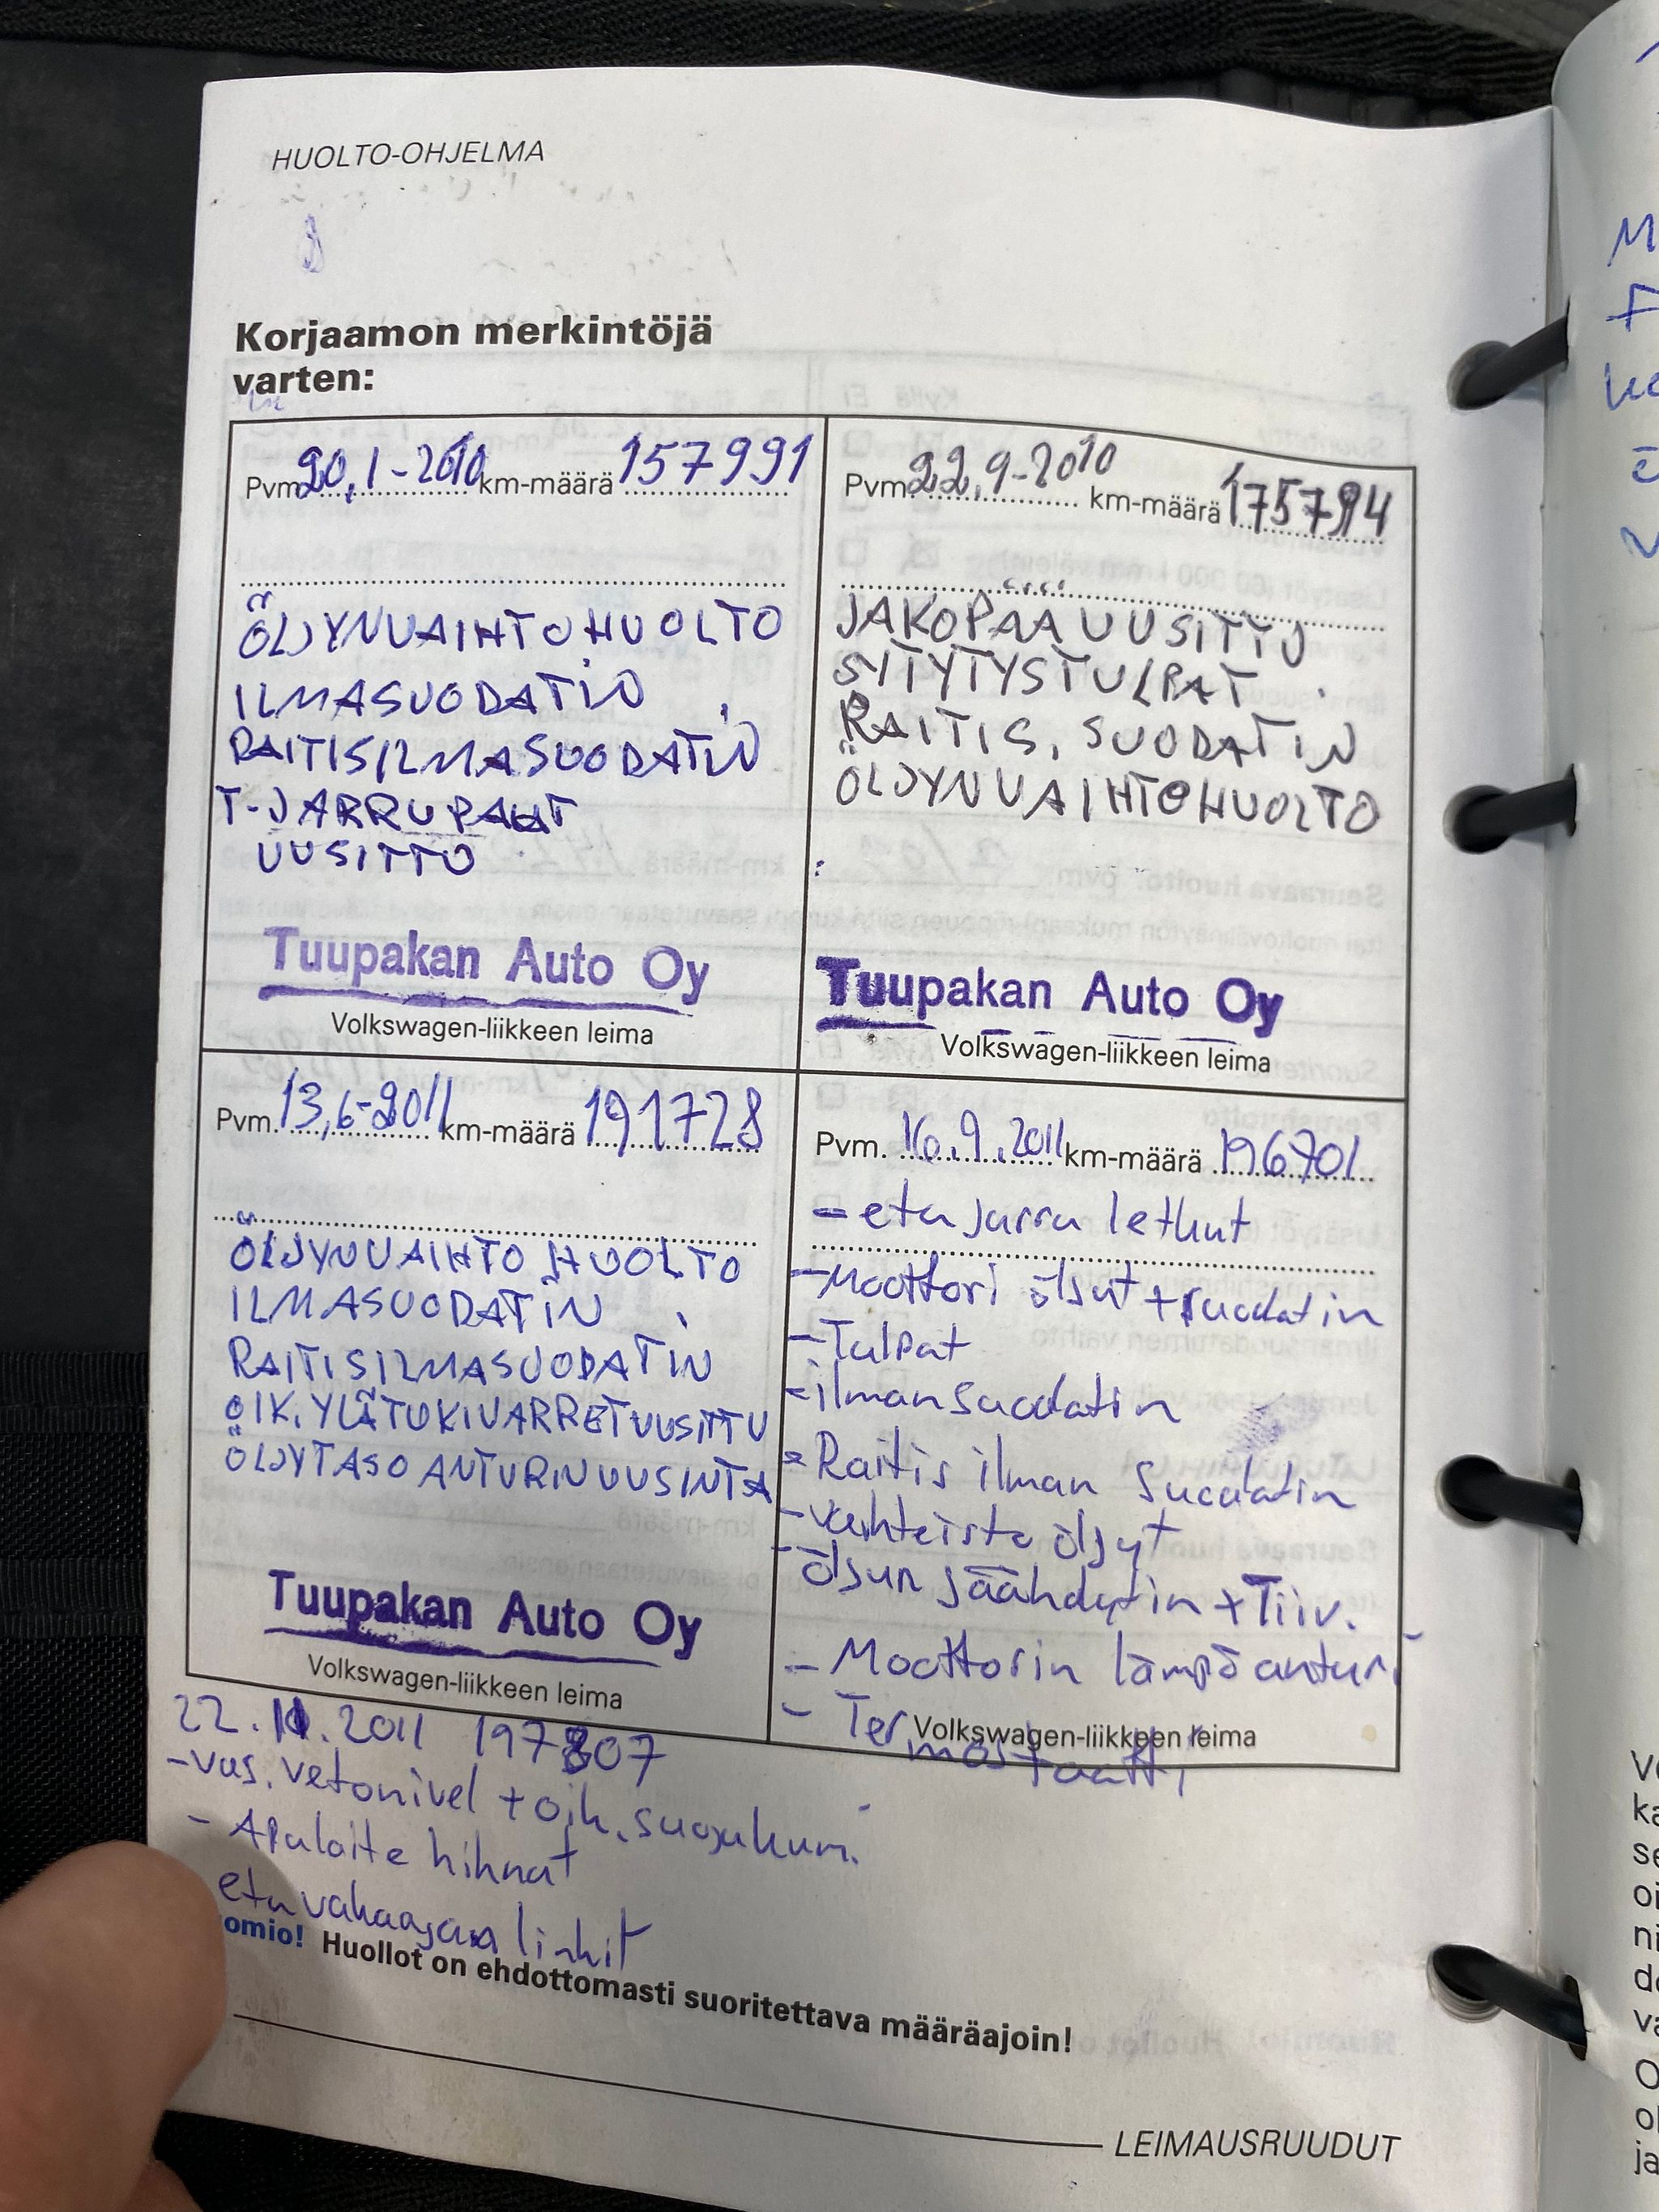 HUOLTO-OHJELMA
Korjaamon merkintöjä
varten:
Pvm 20.1-2010 km-määrä 157991
ÖLJYNVAIHTOHUOLTO
ILMASUODATIN
RAITISILMASUODATIN
T-JARRUPALAT
UUSITTU
Tuupakan Auto Oy
Volkswagen-liikkeen leima
Pvm 22.9-2010 km-määrä 175794
JAKOPÄÄ UUSITTU
SYTYTYSTULPAT
RAITIS. SUODATIN
ÖLJYNVAIHTOHUOLTO
Tuupakan Auto Oy
Volkswagen-liikkeen leima
Pvm. 13.6-2011 km-määrä 191728
ÖLJYNVAIHTO HUOLTO
ILMASUODATIN
RAITISILMASUODATIN
OIK. YLÄTUKIVARRET UUSITTU
ÖLJYTASO ANTURIN UUSINTA
Tuupakan Auto Oy
Volkswagen-liikkeen leima
Pvm. 16.9.2011 km-määrä 196701
- etu jarru letkut
- Moottori öljyt + suodatin
- Tulpat
- ilmansuodatin
- Raitis ilman suodatin
- vaihteisto öljyt
- öljyn jäähdytin + Tiiv.
- Moottorin lämpö anturi
- Termostaatti
Volkswagen-liikkeen leima
22.11.2011 197807
- vas. vetonivel + oik. suojakum.
- Apulaite hihnat
etuvakaajan linkit
omio! Huollot on ehdottomasti suoritettava määräajoin!
LEIMAUSRUUDUT